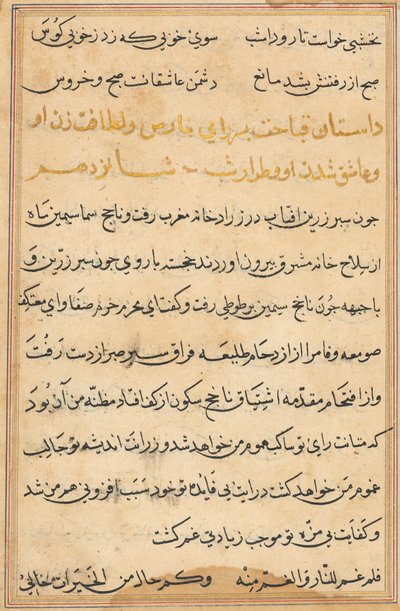 نخشبی خواست تا رود امشب سوئ خوبی که زد ز خوبی کوس
صبح از رفتنش بشد مانع دشمن عاشقانست صبح و خروس
داستان قباحت فارس و لطافت زن او
و عاشق شدن او و طرار شب شانزدهم
جون سپر زرین افتاب در زرادخانه مغرب رفت و ناجخ سیمین ماه
از سلاح خانه مشرق بیرون اوردند خجسته با روی جون سپر زرین و
با جبهه جون ناجخ سیمین بر طوطی رفت و کفت ای محرم حرم صفا و ای معتکف
صومعه وفا مرا از ازدحام طلیعه فراق سپر صبر از دست رفت
و از اقتحام مقدمه اشتیاق ناجخ سکون از کف افتاد مظنه من آن بود
که متانت رای تو سالب هموم من خواهد شد و رزانت اندیشه تو جالب
غموم من خواهد کشت درایت بی فایده تو خود سبب افزونی هم من شد
و کفایت بی مزه تو موجب زیادتی غم کشت
و الغم منه وکم من الخیرات خالی